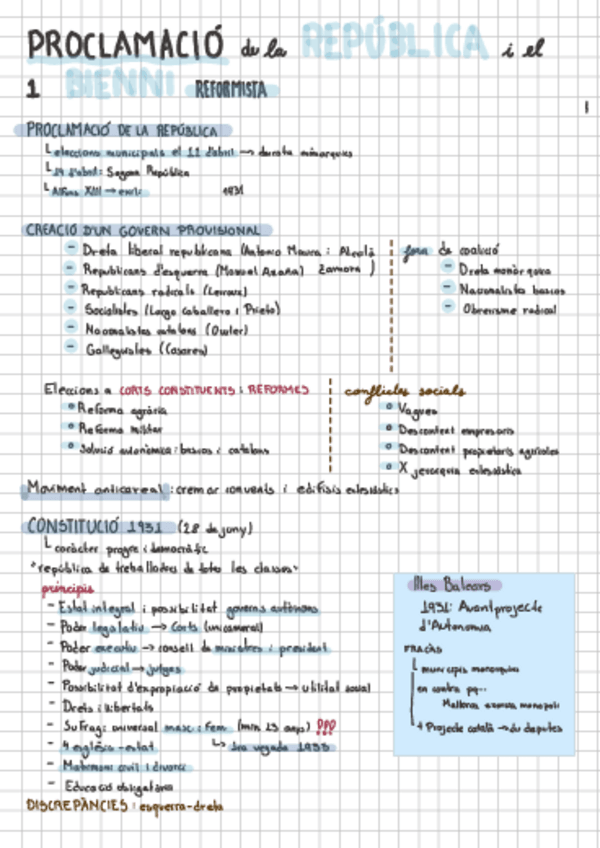 PROCLAMACIÓ de la REPÚBLICA i el
1 BIENNI REFORMISTA
1
PROCLAMACIÓ DE LA REPÚBLICA
eleccions municipals el 12 d'abril → derrota monàrquics
14 d'abril: Segona República
Alfons XIII → exili 1931
CREACIÓ D'UN GOVERN PROVISIONAL
- Dreta liberal republicana (Antonio Maura i Alcalá Zamora)
- Republicans d'esquerra (Manuel Azaña)
- Republicans radicals (Lerroux)
- Socialistes (Largo Caballero i Prieto)
- Nacionalistes catalans (Owler)
- Galleguistes (Casares)
fora de coalició
- Dreta monàrquica
- Nacionalista bascos
- Obrerisme radical
Eleccions a CORTS CONSTITUENTS i REFORMES
Reforma agrària
Reforma militar
Solució autonòmica: bascos i catalans
conflictes socials
Vagues
Descontent empresaris
Descontent propietaris agrícoles
X jerarquia eclesiàstica
Moviment anticareal: cremar convents i edificis eclesiàstics
CONSTITUCIÓ 1931 (28 de juny)
caràcter progre i democràtic
"república de treballadors de totes les classes"
principis
- Estat integral i possibilitat governs autònoms
- Poder legislatiu → Corts (unicameral)
- Poder executiu → consell de ministres i president
- Poder judicial → jutges
- Possibilitat d'expropiació de propietats → utilitat social
- Drets i llibertats
- Sufragi universal masc i fem (min 23 anys) !!!
1ra vegada 1933
- església-estat
- Matrimoni civil i divorci
- Educació obligatòria
DISCREPÀNCIES: esquerra-dreta
Illes Balears
1931: Avantprojecte
d'Autonomia
FRACÀS
municipis monàrquics
en contra pq...
Mallorca monopoli
+ Projecte català → diputes